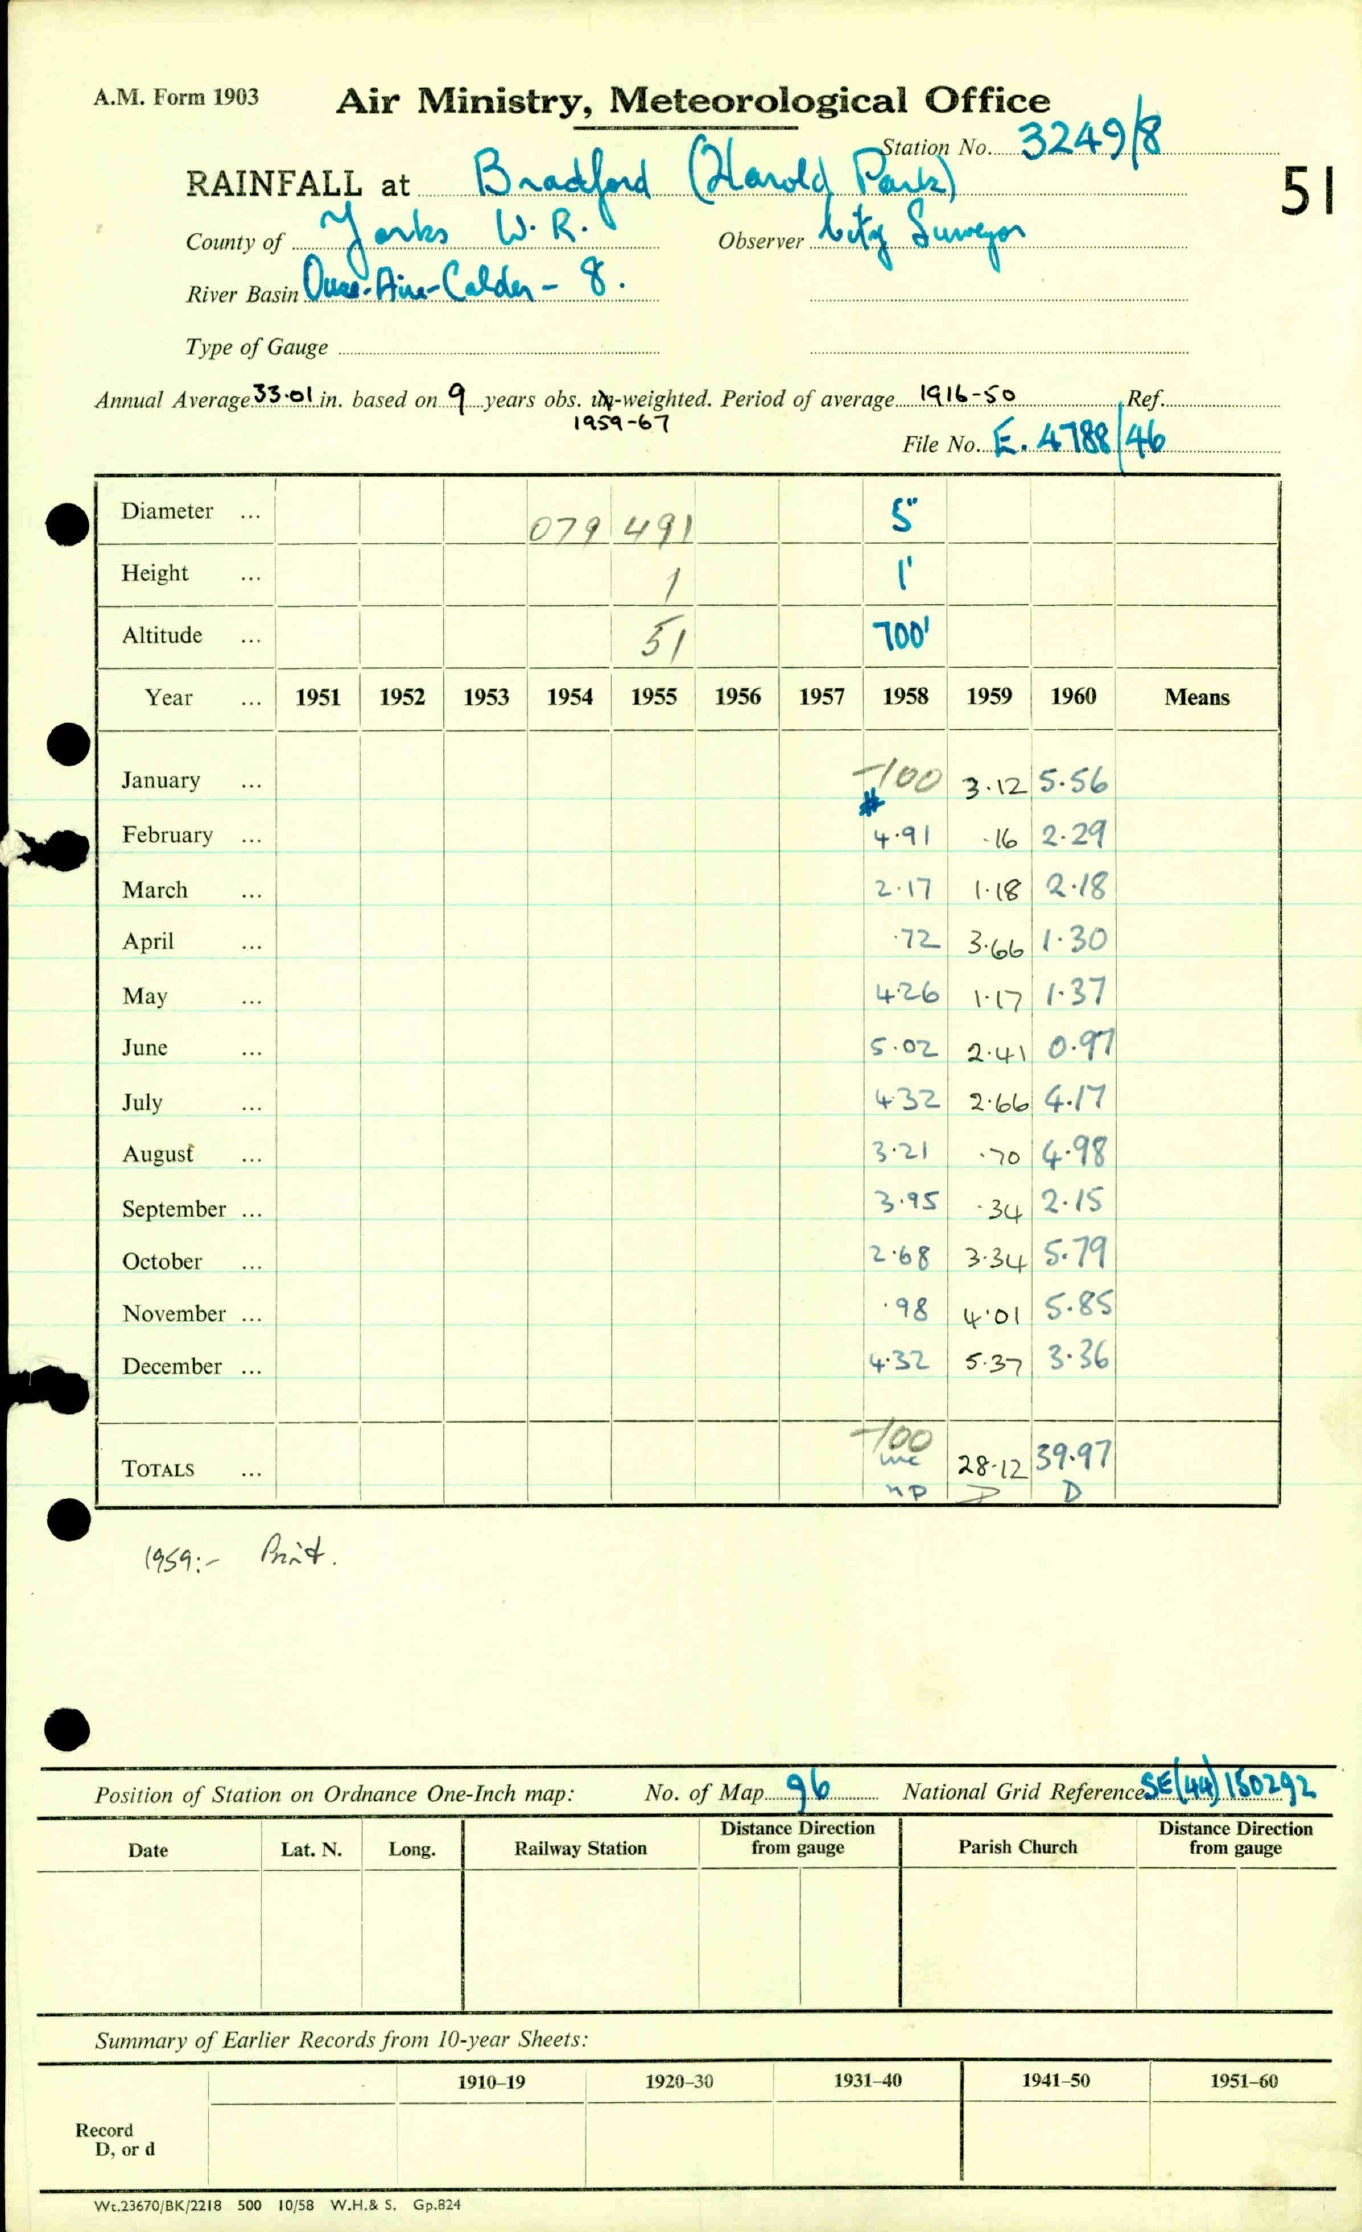 A.M. Form 1903 Air Ministry, Meteorological Office
Station No. 3249/8
RAINFALL at Bradford (Harold Park)
51
County of Yorks W.R. Observer City Surveyor
River Basin Ouse-Aire-Calder - 8.
Type of Gauge
Annual Average 33.01 in. based on 9 years obs. un-weighted. Period of average 1916-50 Ref.
1959-67
File No. E. 4788/46
Diameter ... 079 491 5"
Height ... 1 1'
Altitude ... 51 700'
Year ... 1951 1952 1953 1954 1955 1956 1957 1958 1959 1960 Means
January ... -100 3.12 5.56
#
February ... 4.91 .16 2.29
March ... 2.17 1.18 2.18
April ... .72 3.66 1.30
May ... 4.26 1.17 1.37
June ... 5.02 2.41 0.97
July ... 4.32 2.66 4.17
August ... 3.21 .70 4.98
September ... 3.95 .34 2.15
October ... 2.68 3.34 5.79
November ... .98 4.01 5.85
December ... 4.32 5.37 3.36
-100
TOTALS ... inc 28.12 39.97
np D D
1959:- Print.
Position of Station on Ordnance One-Inch map: No. of Map 96 National Grid Reference SE(44)150292
Date Lat. N. Long. Railway Station Distance Direction from gauge Parish Church Distance Direction from gauge
Summary of Earlier Records from 10-year Sheets:
1910-19 1920-30 1931-40 1941-50 1951-60
Record
D, or d
Wt.23670/BK/2218 500 10/58 W.H.& S. Gp.824